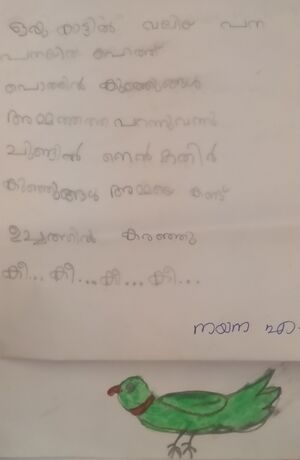 ഒരു കാട്ടിൽ വലിയ പന
പനയിൽ പൊത്ത്
പൊത്തിൽ കുഞ്ഞുങ്ങൾ
അമ്മത്തത്ത പറന്നുവന്നു
ചുണ്ടിൽ നെൽകതിർ
കുഞ്ഞുങ്ങൾ അമ്മയെ കണ്ട്
ഉച്ചത്തിൽ കരഞ്ഞു
കീ... കീ... കീ... കീ...
നയന എ